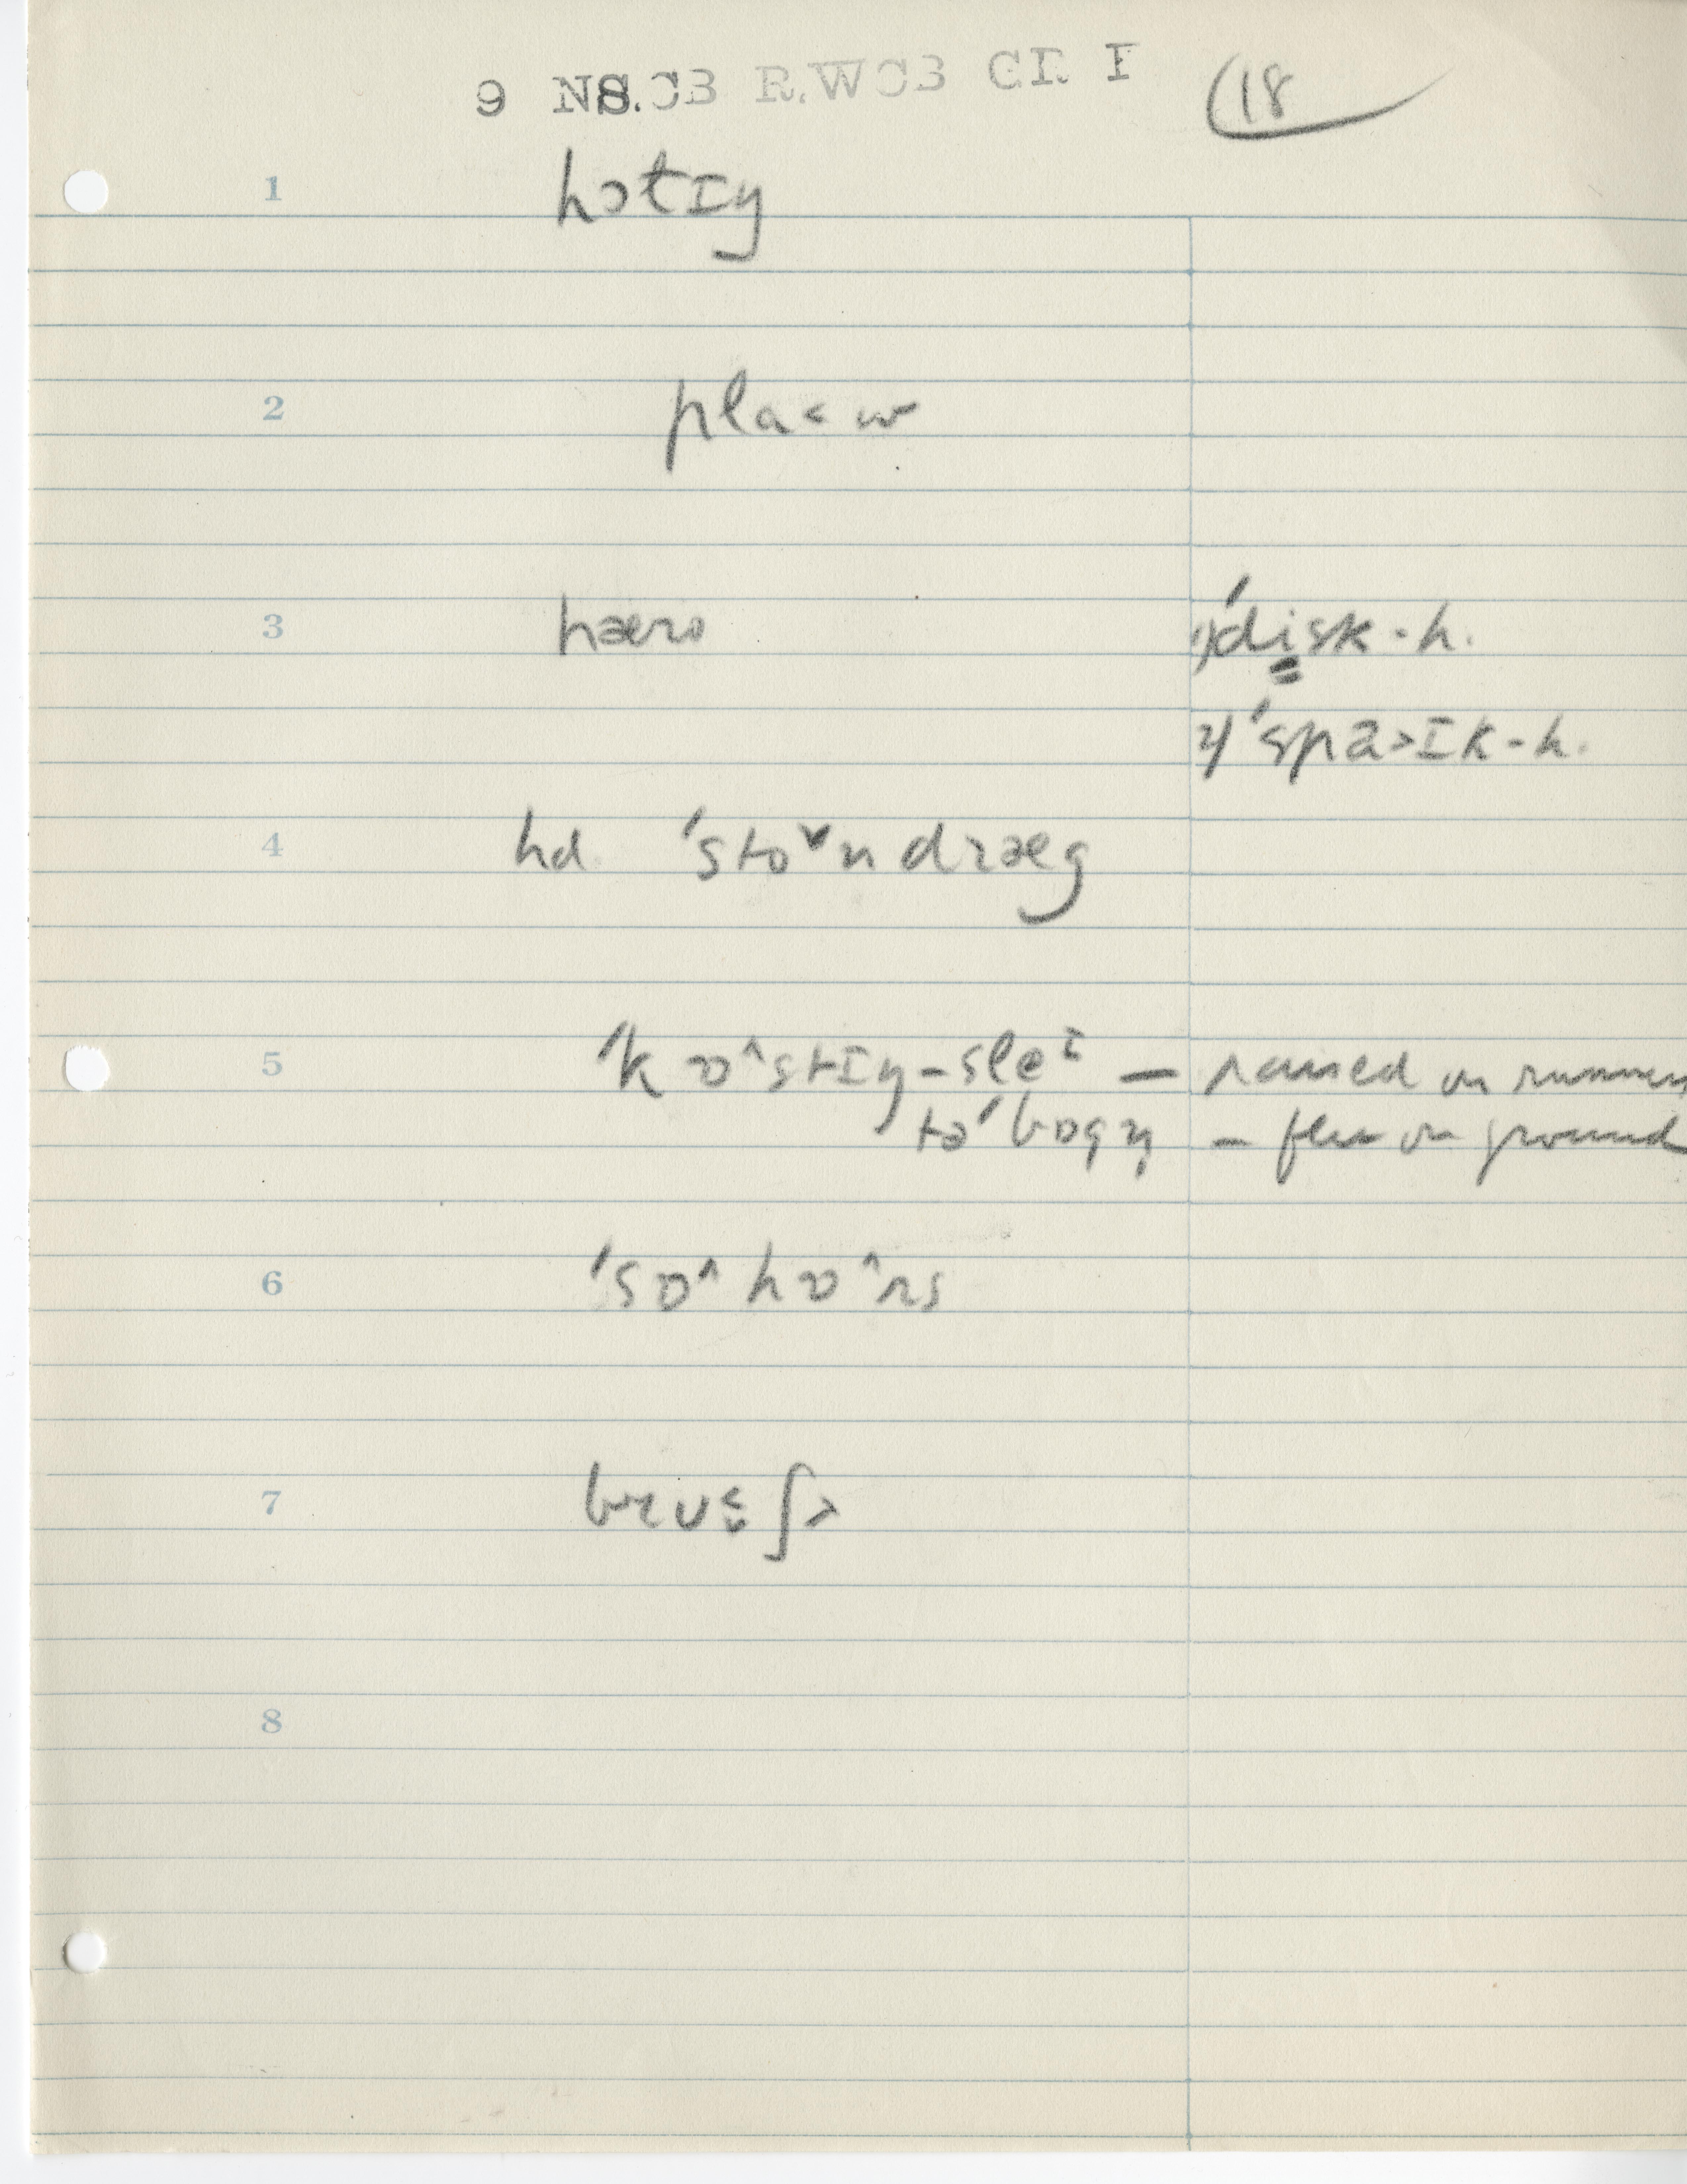 9 NS.CB R.WCB GR I (18
1 hɔtɪy
2 pla< w
3 hæro 1) ˈdisk-h.
2) ˈspa>ɪk-h.
4 hd ˈsto˅n dræg
5 ˈkɒ^stɪy-sleᶦ — raised on runners
təˈbɒgɪŋ — flat on ground
6 ˈsɒ^ hɒ^rs
7 brʊ ʃ>
8